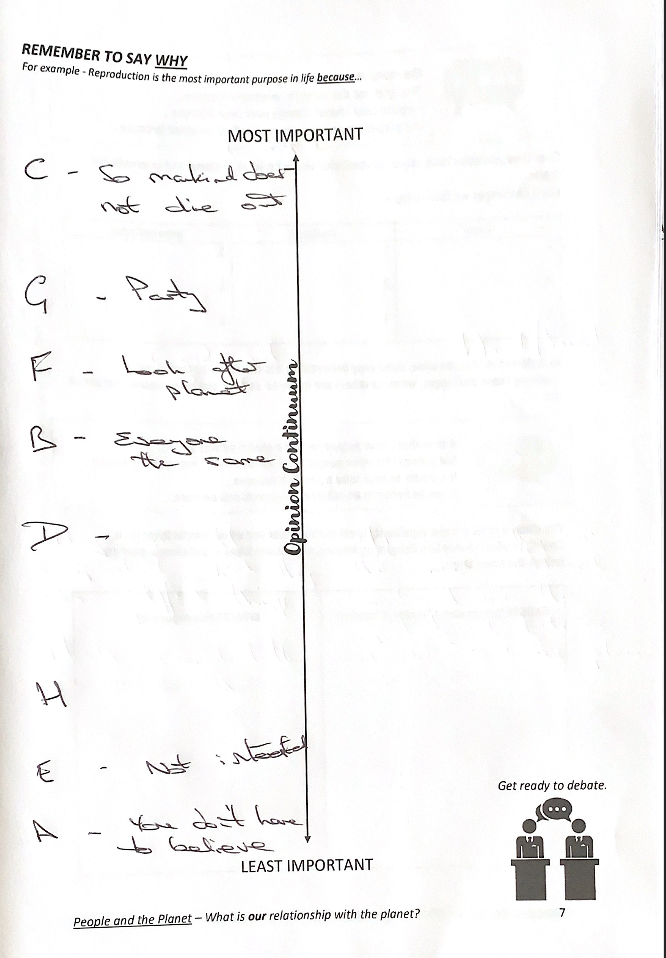 REMEMBER TO SAY WHY
For example - Reproduction is the most important purpose in life because...
MOST IMPORTANT
C - So mankind does
not die out
G - Party
F - Look after
planet
B - Everyone
the same
Opinion Continuum
D -
H
E - Not interested
A - You don't have
to believe
LEAST IMPORTANT
Get ready to debate.
People and the Planet – What is our relationship with the planet?
7